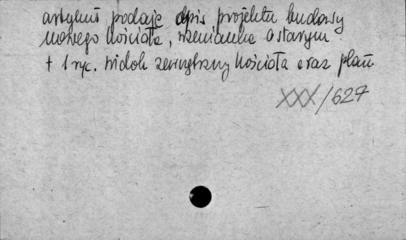 artykuł podaje opis projektu budowy
nowego kościoła, wzmianka o starym
+ 1 ryc. widok zewnętrzny kościoła oraz plan
XXX/627